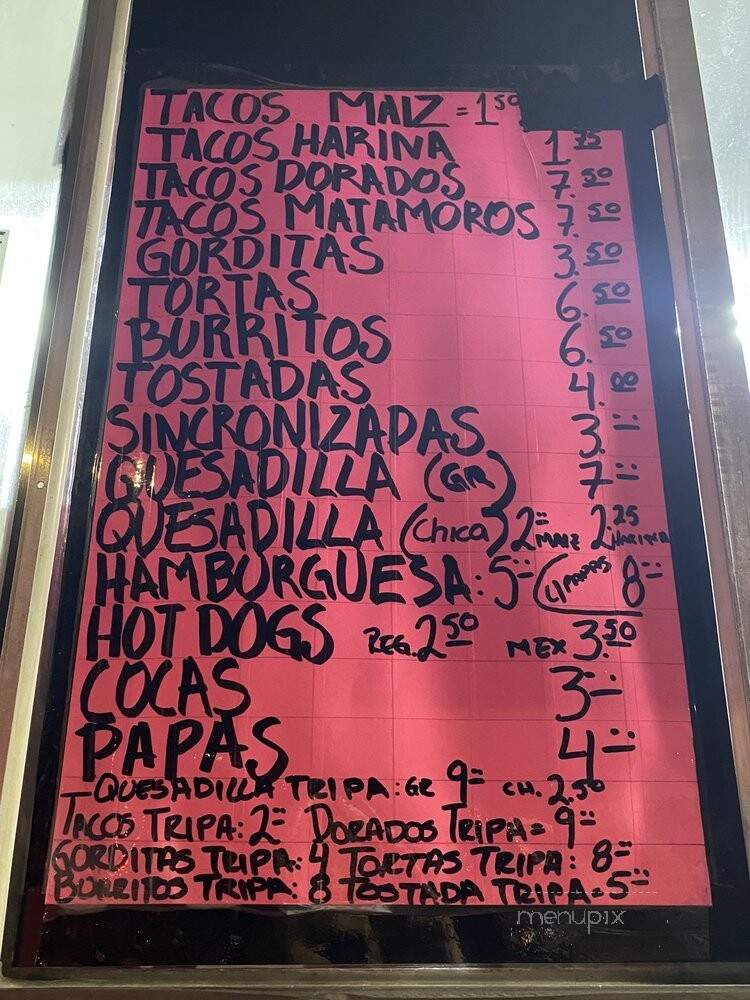 TACOS MAIZ = 1 50
TACOS HARINA 1 75
TACOS DORADOS 7. 50
TACOS MATAMOROS 7. 50
GORDITAS 3. 50
TORTAS 6. 50
BURRITOS 6. 50
TOSTADAS 4. 00
SINCRONIZADAS 3. =
QUESADILLA (GR) 7 =
QUESADILLA (Chica) 2 = MAIZ 2. 25 HARINA
HAMBURGUESA: 5 = (4 PAPAS 8 =
HOT DOGS REG. 2 50 MEX 3. 50
COCAS 3 =
PAPAS 4 =
QUESADILLA TRIPA: GR 9 = CH. 2.50
TACOS TRIPA: 2 = DORADOS TRIPA = 9 =
GORDITAS TRIPA: 4 TORTAS TRIPA: 8 =
BURRITOS TRIPA: 8 TOSTADA TRIPA = 5 =
menupix